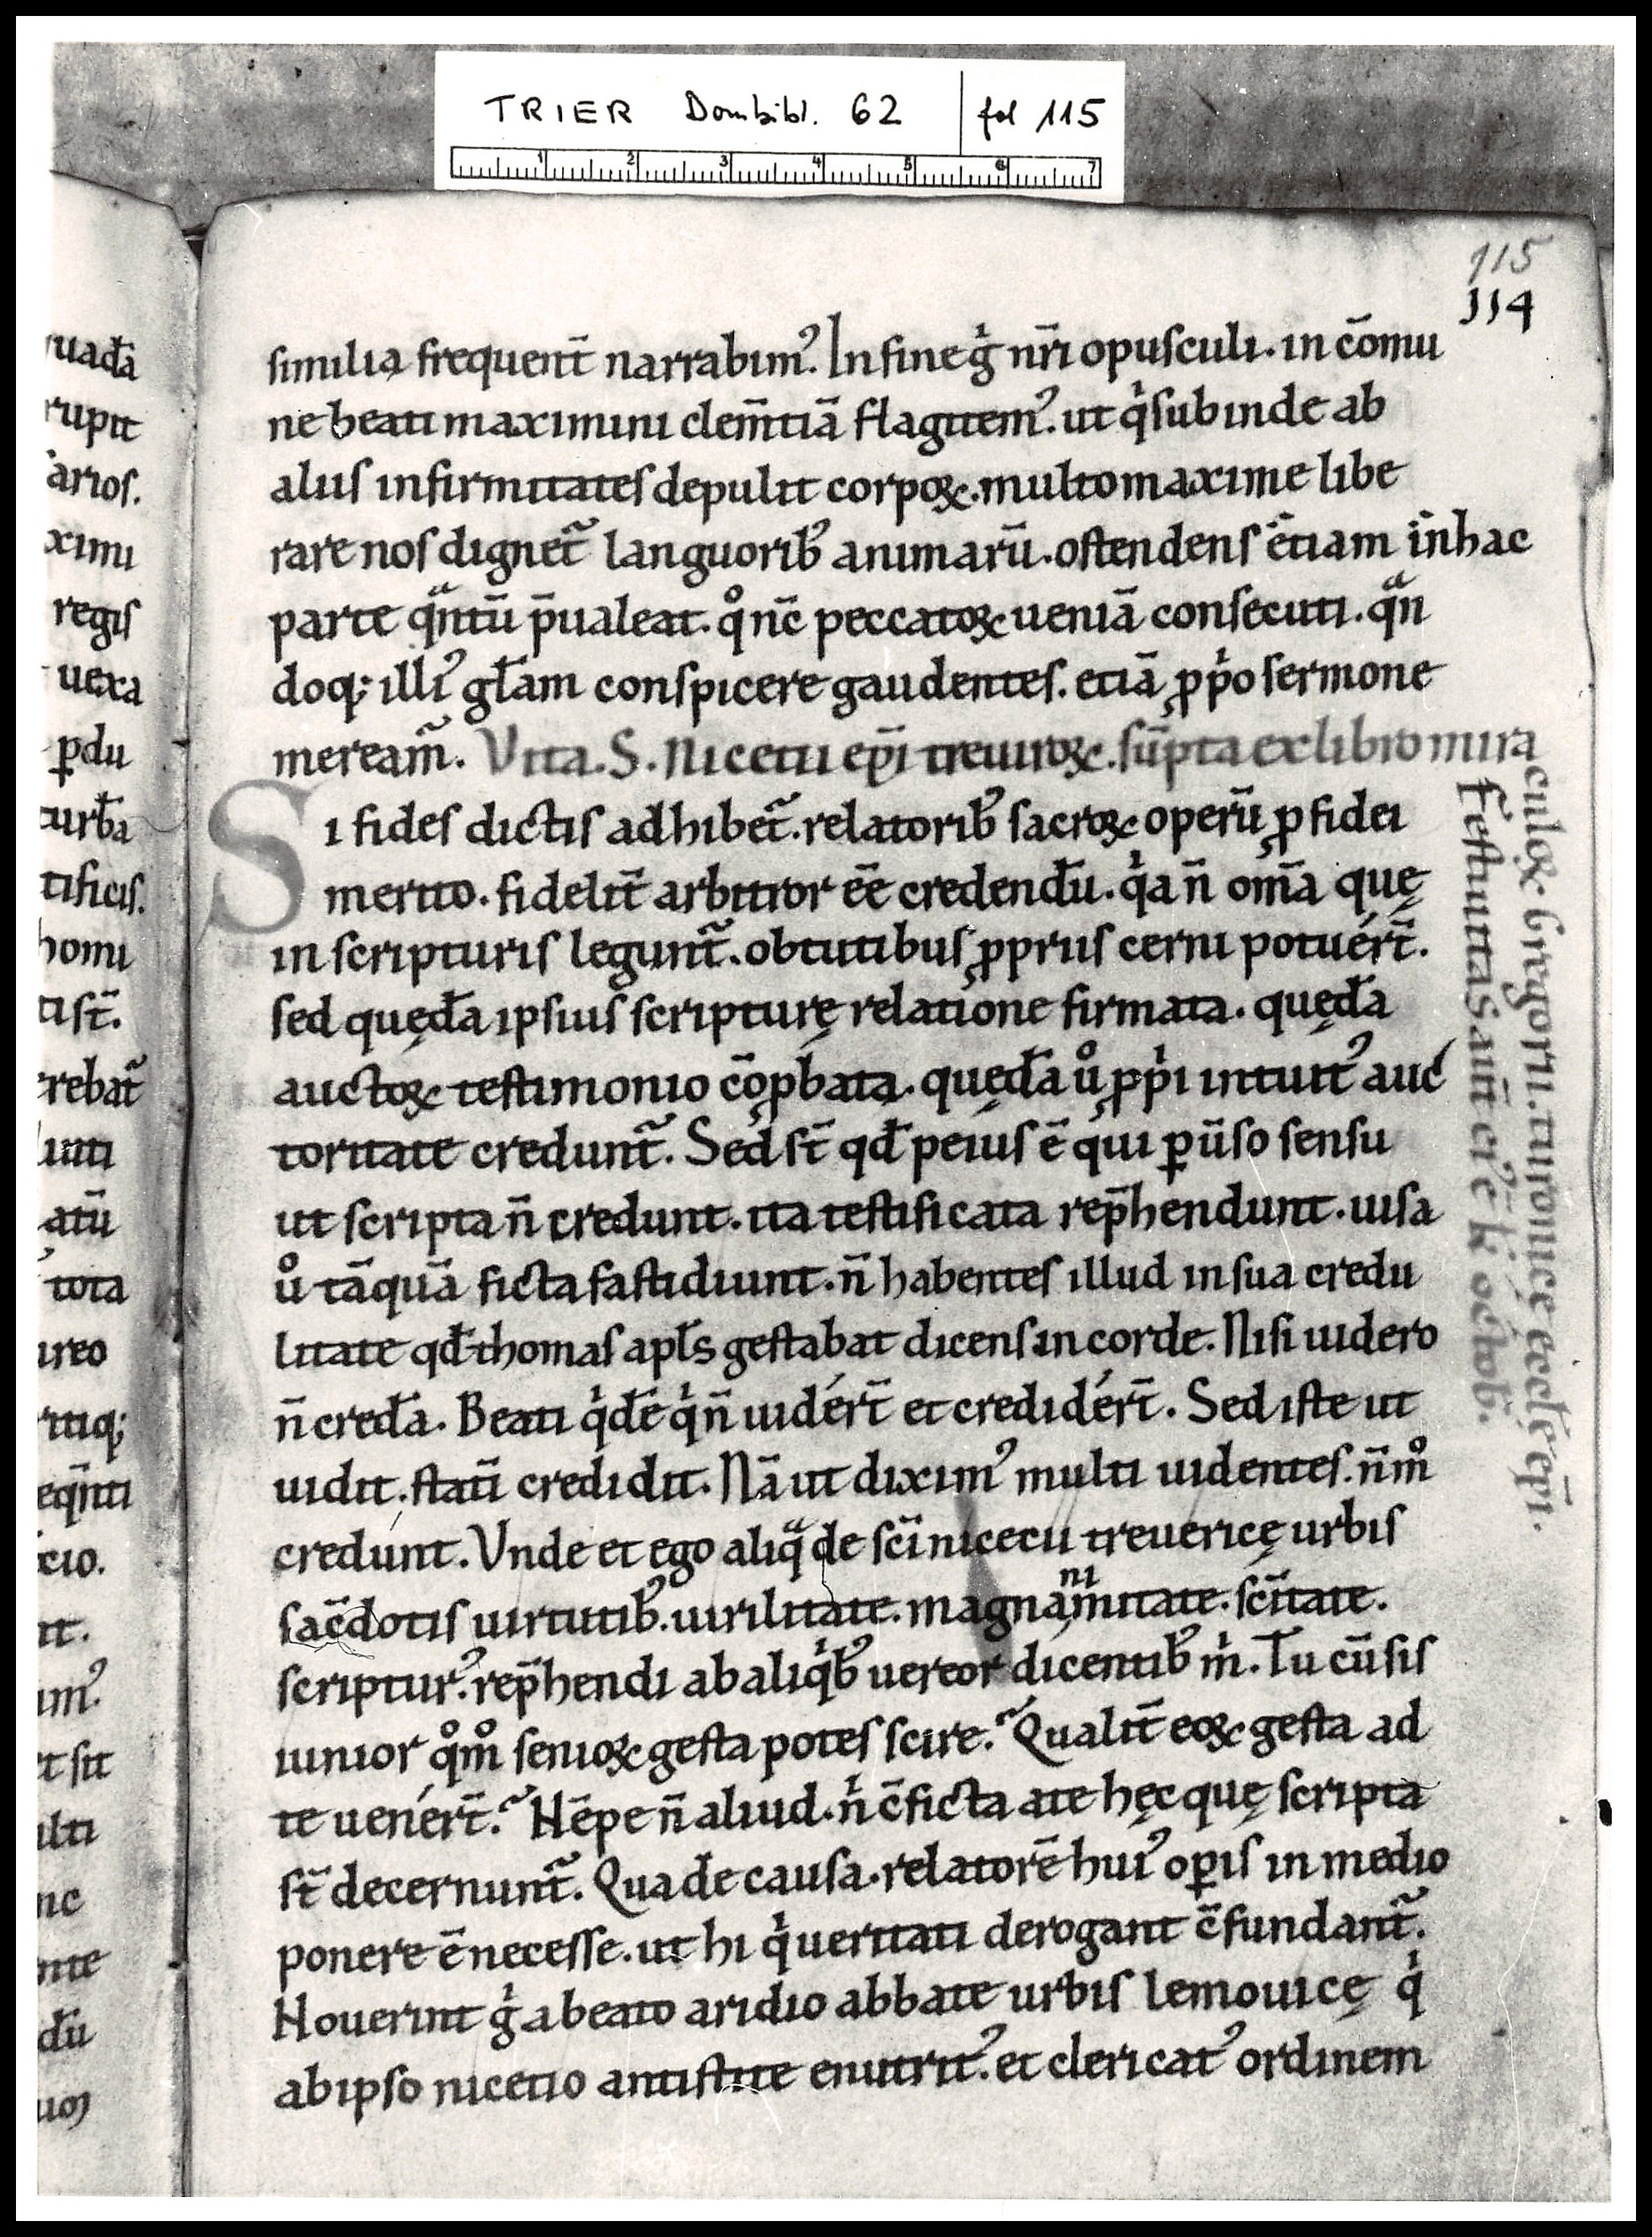 TRIER Dombibl. 62 fol 115
1 2 3 4 5 6 7
115
114
uad̄a
rupit
arios.
ximi
regis
uexa
ꝑdu
turb̄a
tificis.
homi
ti st̄.
rebat᷑
atū
tota
ureo
ritiq;
eq̄nti
cio.
it.
im᾿.
t sit
ulti
nc
nte
dū
similia frequent̄ narrabim᾿. In fine gͥ nr̄i opusculi. in cōmu
ne beati maximini clem̄tiā flagitem᾿. ut qͥ subinde ab
aliis infirmitates depulit corpoꝝ. multo maxime libe
rare nos dignet᷑ languorib᾿ animarū. ostendens etiam in hac
parte qͣntū p̄ualeat. qͦ nc̄ peccatoꝝ ueniā consecuti. qͣn
doq; illi᾿ gl̄am conspicere gaudentes. etiā ꝓpͥo sermone
meream᷑. Vita. S. Nicetii ep̄i treuiroꝝ. sūpta ex libro mira
culoꝝ. Gregorii. turonicę eccl̄ę ep̄i.
Festiuitas aut̄ ei᾿ ē k̄ octob̄.
Si fides dictis adhibet᷑. relatorib᾿ sacroꝝ operū ꝓ fidei
merito. fidelit̄ arbitror ēe credendū. qͥa n̄ om̄a quę
in scripturis legunt᷑. obtutibus ꝓpriis cerni potuért̄.
sed quęd̄a ipsius scripturę relatione firmata. quęd̄a
auctoꝝ testimonio cōꝓbata. quęd̄a uͦ ꝓpͥi intuit᾿ auc
toritate credunt᷑. Sed st̄ qd̄ peius ē qui ꝑuso sensu
ut scripta n̄ credunt. ita testificata rep̄hendunt. uisa
uͦ tāquā ficta fastidiunt. n̄ habentes illud in sua credu
litate qd̄ thomas apl̄s gestabat dicens in corde. Nisi uidero
n̄ cred̄a. Beati qͥdē qͥ n̄ uidért̄ et credidért̄. Sed iste ut
uidit. stati᷑ credidit. Nā ut dixim᾿ multi uidentes. n̄mͦ
credunt. Vnde et ego aliqͣ de sc̄i nicecii treuericę urbis
sac̄dotis uirtutib᾿. uirilitate. magnamnitate. sc̄itate.
scriptur᾿. rep̄hendi ab aliqͥb᾿ uereor dicentib᾿ mͥ. Tu cū sis
iunior qͦmͦ senioꝝ gesta potes scire? Qualit̄ eoꝝ gesta ad
te uenért̄? Nēpe n̄ aliud. nͥ c̄ficta a te hęc quę scripta
st̄ decernunt᷑. Qua de causa. relatorē hui᾿ oꝑis in medio
ponere ē necesse. ut hi qͥ ueritati derogant c̄fundant᷑.
Nouerint gͥ a beato aridio abbate urbis lemouicę qͥ
ab ipso nicetio antistite enutrit᾿. et clericat᾿ ordinem